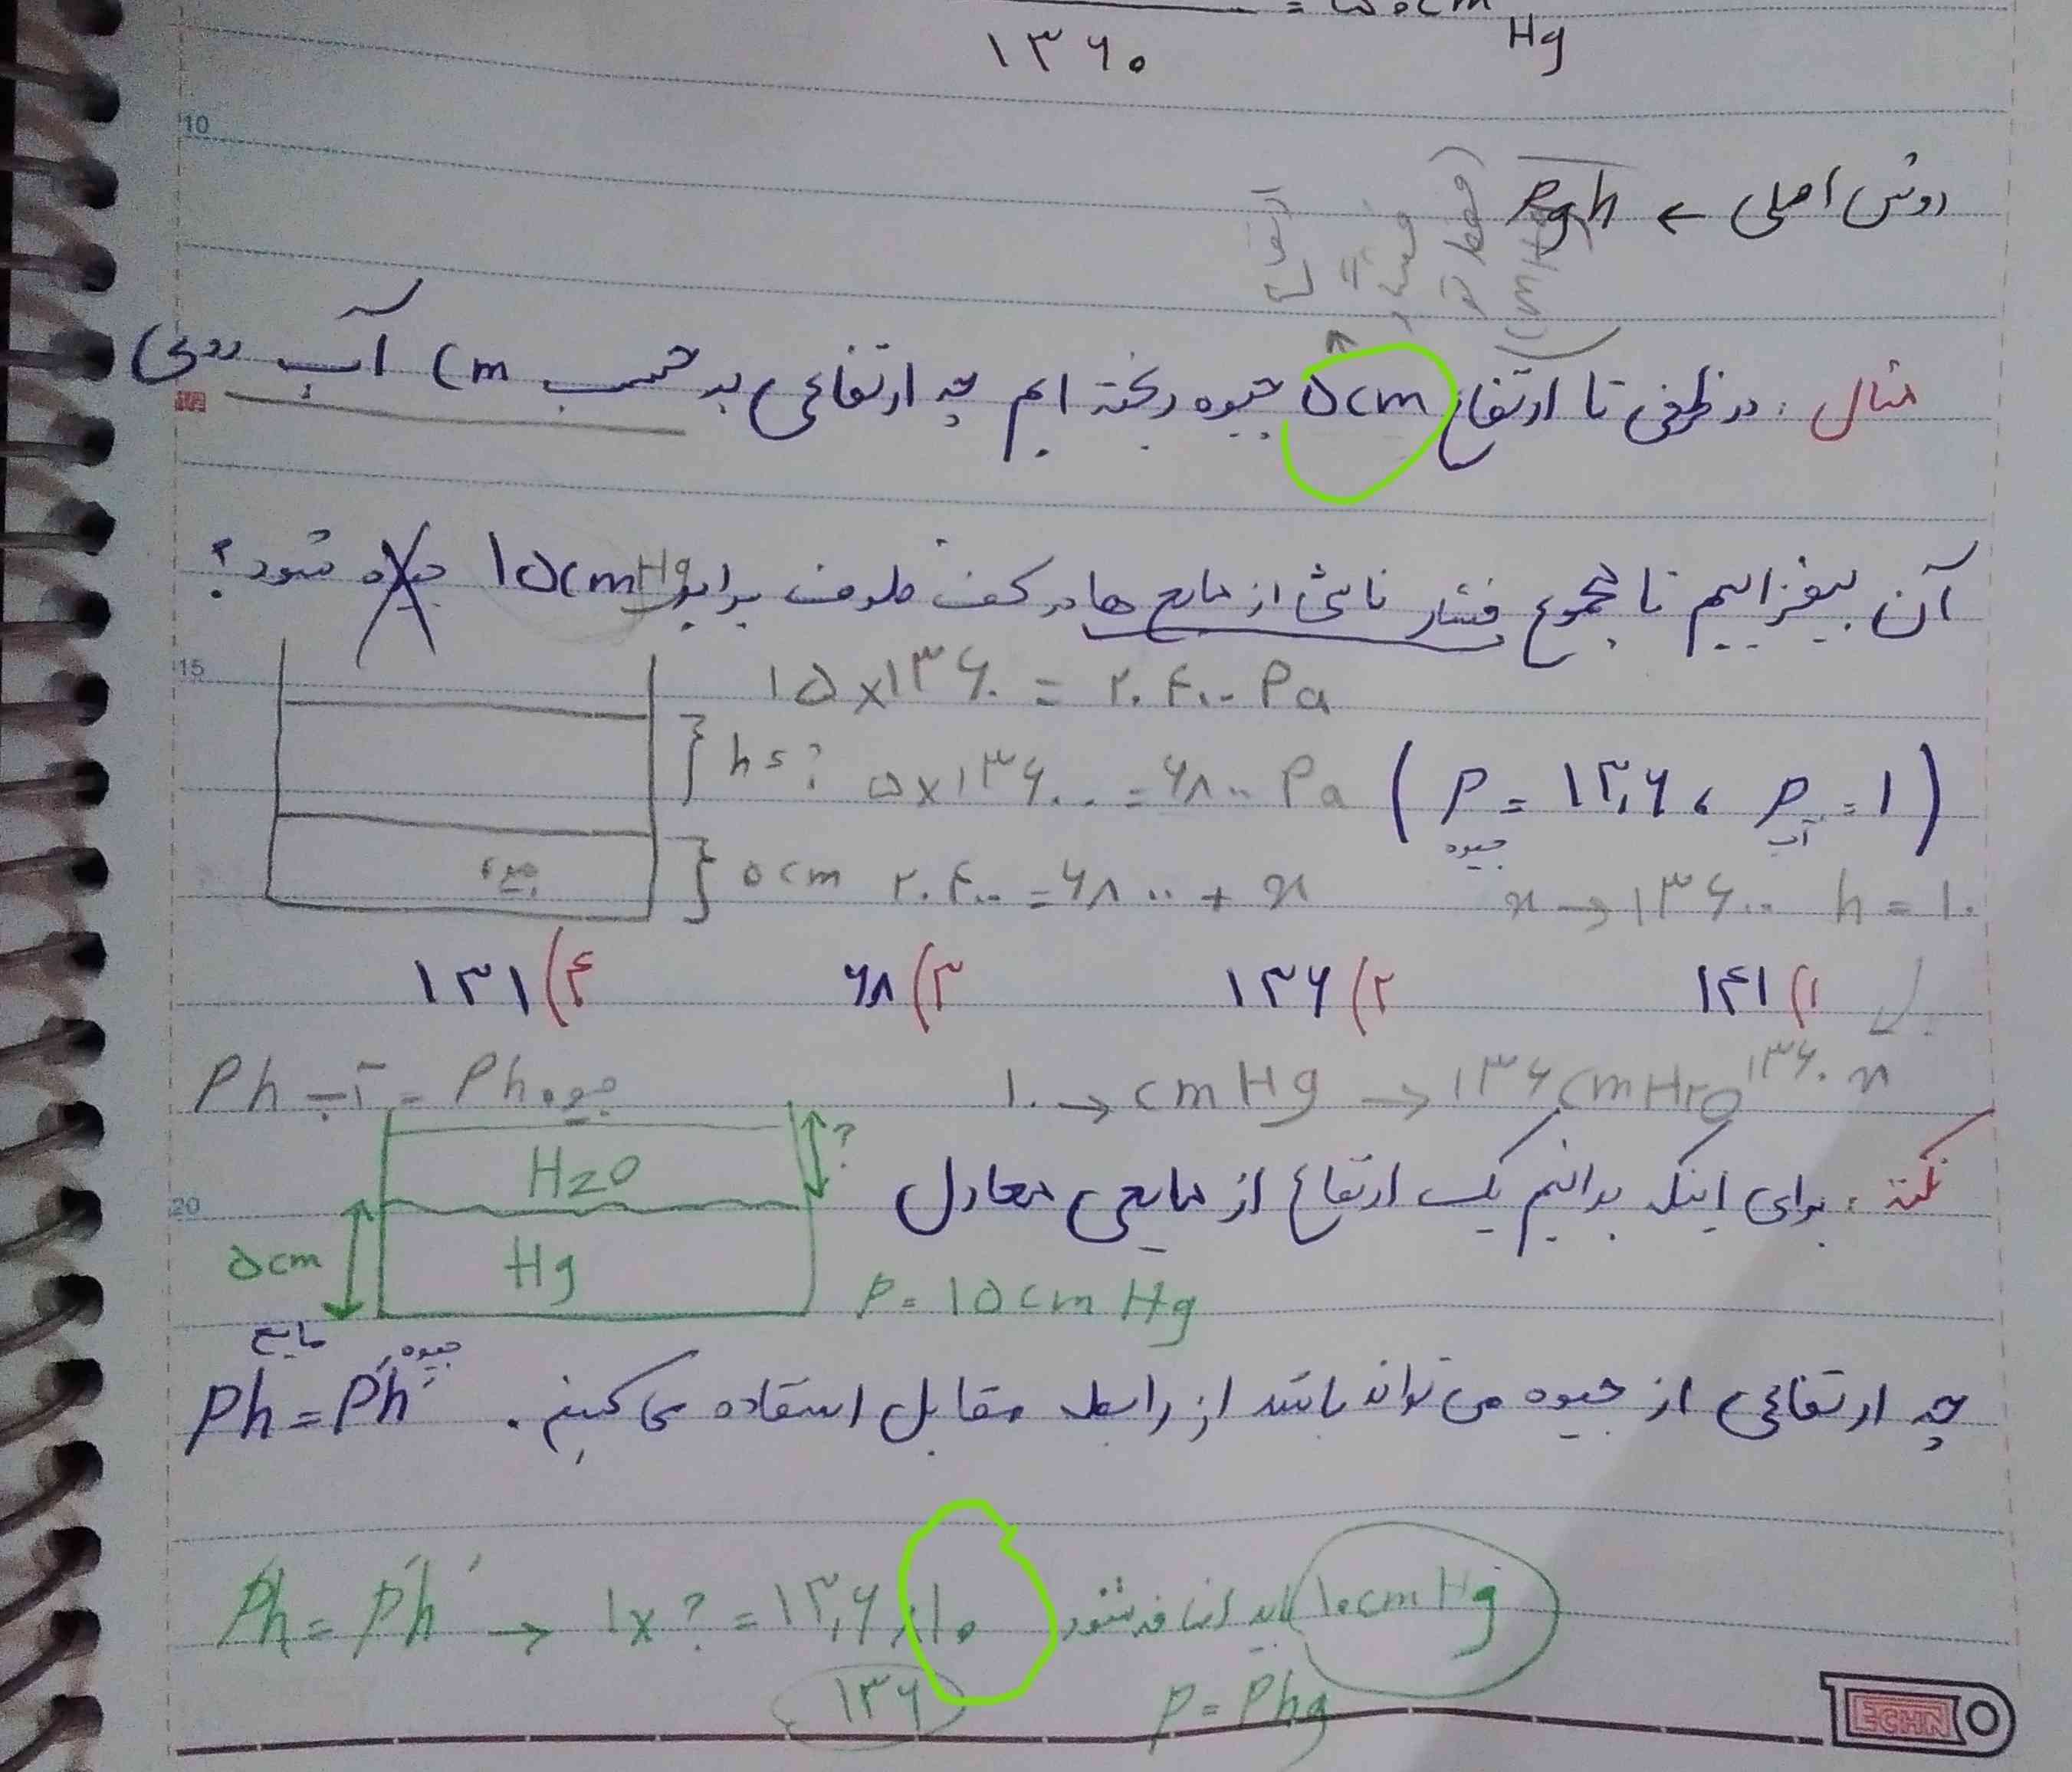 ۱۳۶۰
= ۵۰cm Hg
10
روش اصلی ← ρgh
مثال : در ظرفی تا ارتفاع ۵cm جیوه ریخته ایم چه ارتفاعی بر حسب cm آب روی
آن بیفزاییم تا مجموع فشار ناشی از مایع ها در کف ظرف برابر ۱۵cmHg جیوه شود ؟
15
۱۵×۱۳۶۰ = ۲۰۴۰۰ Pa
} h = ? ۵×۱۳۶۰۰ = ۶۸۰۰ Pa ( ρ جیوه = ۱۳٫۶ ، ρ آب = ۱ )
جیوه } ۵cm ۲۰۴۰۰ = ۶۸۰۰ + x x → ۱۳۶۰۰ h = ۱۰
۱) ۱۴۱ ۲) ۱۳۶ ۳) ۶۸ ۴) ۱۳۱
ρh آب = ρh جیوه ۱۰ → cmHg → ۱۳۶cmH۲O ۱۳۶۰x
H2O ?
نکته : برای اینکه بدانیم یک ارتفاع از مایعی معادل
20
۵cm Hg P = ۱۵cmHg
چه ارتفاعی از جیوه می تواند باشد از رابطه مقابل استفاده می کنیم . ρh مایع = ρ'h' جیوه
ρh = ρ'h' → ۱×? = ۱۳٫۶×۱۰ باید اضافه شود ۱۰cmHg
۱۳۶ P = ρhg
ECHN